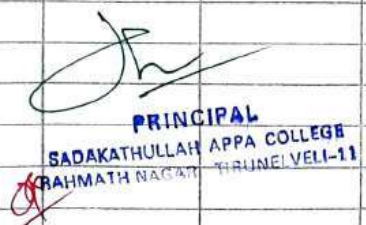 PRINCIPAL
SADAKATHULLAH APPA COLLEGE
RAHMATH NAGAR TIRUNELVELI-11